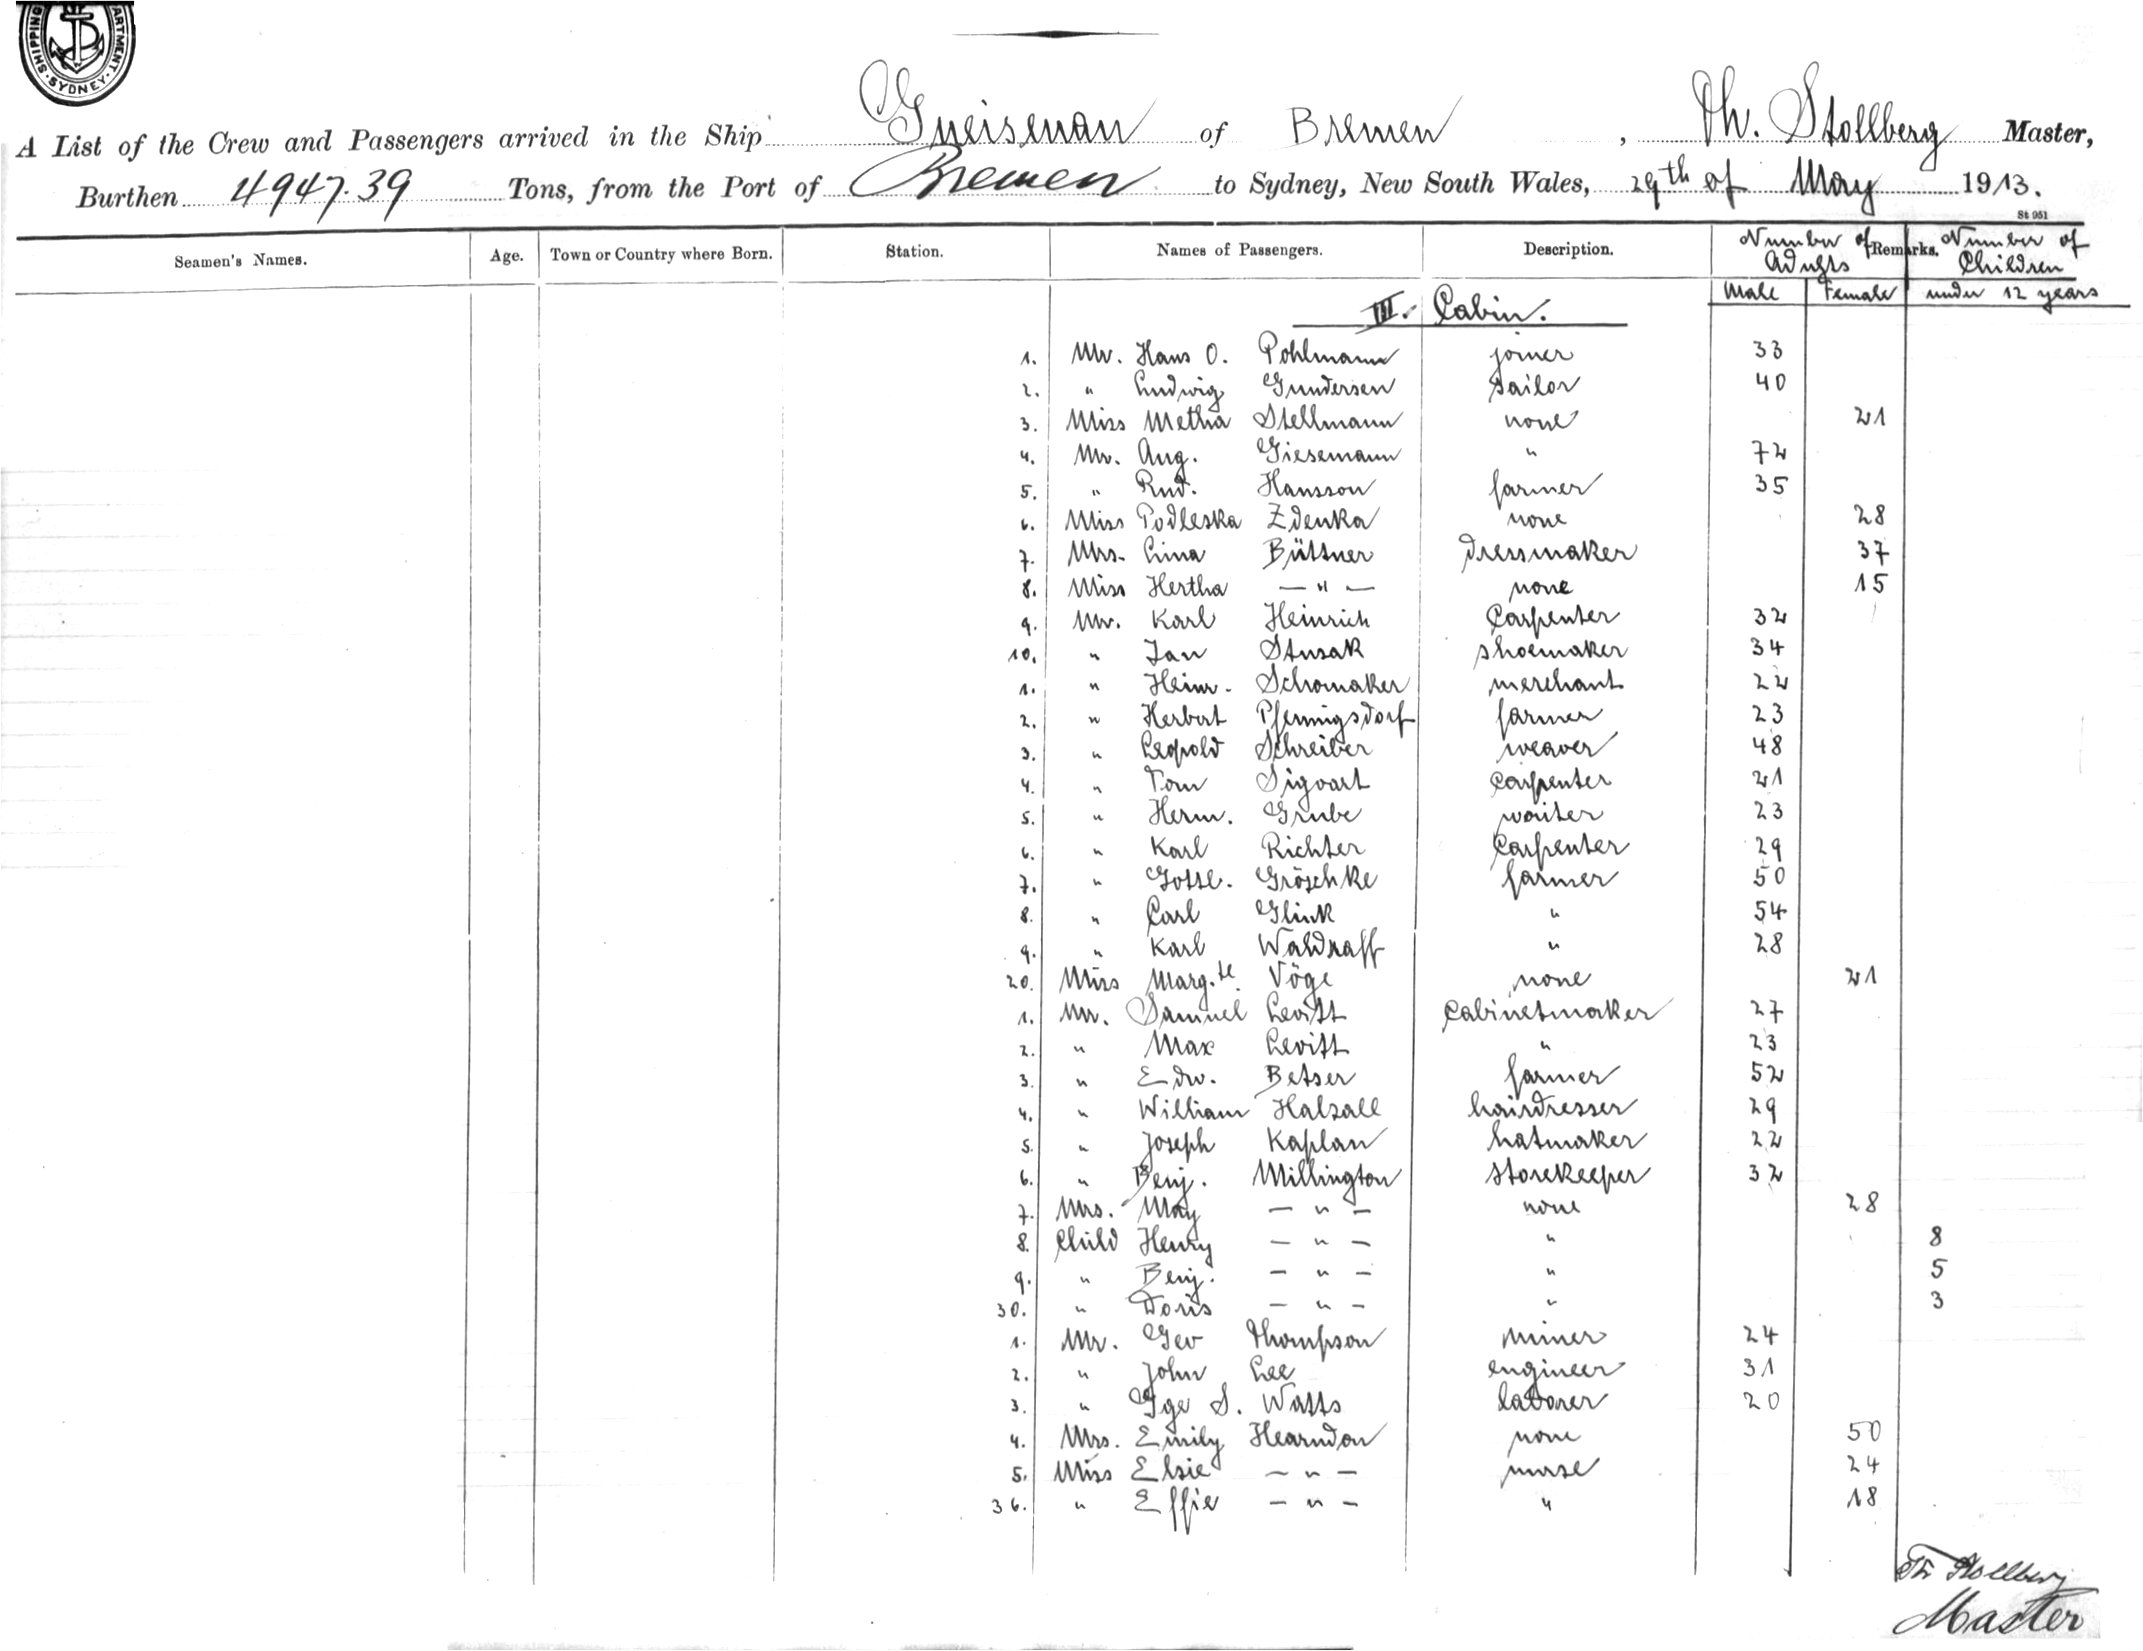 SHIPPING DEPARTMENT · SYDNEY ·
A List of the Crew and Passengers arrived in the Ship Gneisenau of Bremen , Th. Stollberg Master,
Burthen 4947.39 Tons, from the Port of Bremen to Sydney, New South Wales, 29th of May 1913.
St 951
Seamen's Names. Age. Town or Country where Born. Station. Names of Passengers. Description. Number of Adults Remarks. Number of Children
Male Female under 12 years
III. Cabin.
1. Mr. Hans O. Pohlmann joiner 33
2. " Ludwig Gundersen sailor 40
3. Miss Metha Stellmann none 21
4. Mr. Aug. Giesemann " 72
5. " Rud. Hansson farmer 35
6. Miss Podleska Zdenka none 28
7. Mrs. Lina Büttner dressmaker 37
8. Miss Hertha — " — none 15
9. Mr. Karl Heinrich Carpenter 32
10. " Jan Stusak shoemaker 34
1. " Heinr. Schomaker merchant 22
2. " Herbert Pfennigsdorf farmer 23
3. " Leopold Schreiber weaver 48
4. " Tom Sigvart carpenter 21
5. " Herm. Grube waiter 23
6. " Karl Richter Carpenter 29
7. " Gottl. Gröschke farmer 50
8. " Carl Glink " 54
9. " Karl Waldraff " 28
20. Miss Marg.te Vöge none 21
1. Mr. Samuel Levitt Cabinetmaker 27
2. " Max Levitt " 23
3. " Edw. Betser farmer 52
4. " William Halsall hairdresser 29
5. " Joseph Kaplan hatmaker 22
6. " Benj. Millington storekeeper 32
7. Mrs. May — " — none 28
8. Child Henry — " — " 8
9. " Benj. — " — " 5
30. " Doris — " — " 3
1. Mr. Geo Thompson miner 24
2. " John Lee engineer 31
3. " Gge S. Watts laborer 20
4. Mrs. Emily Hearndon none 50
5. Miss Elsie — " — nurse 24
36. " Effie — " — " 18
Th Stollberg
Master